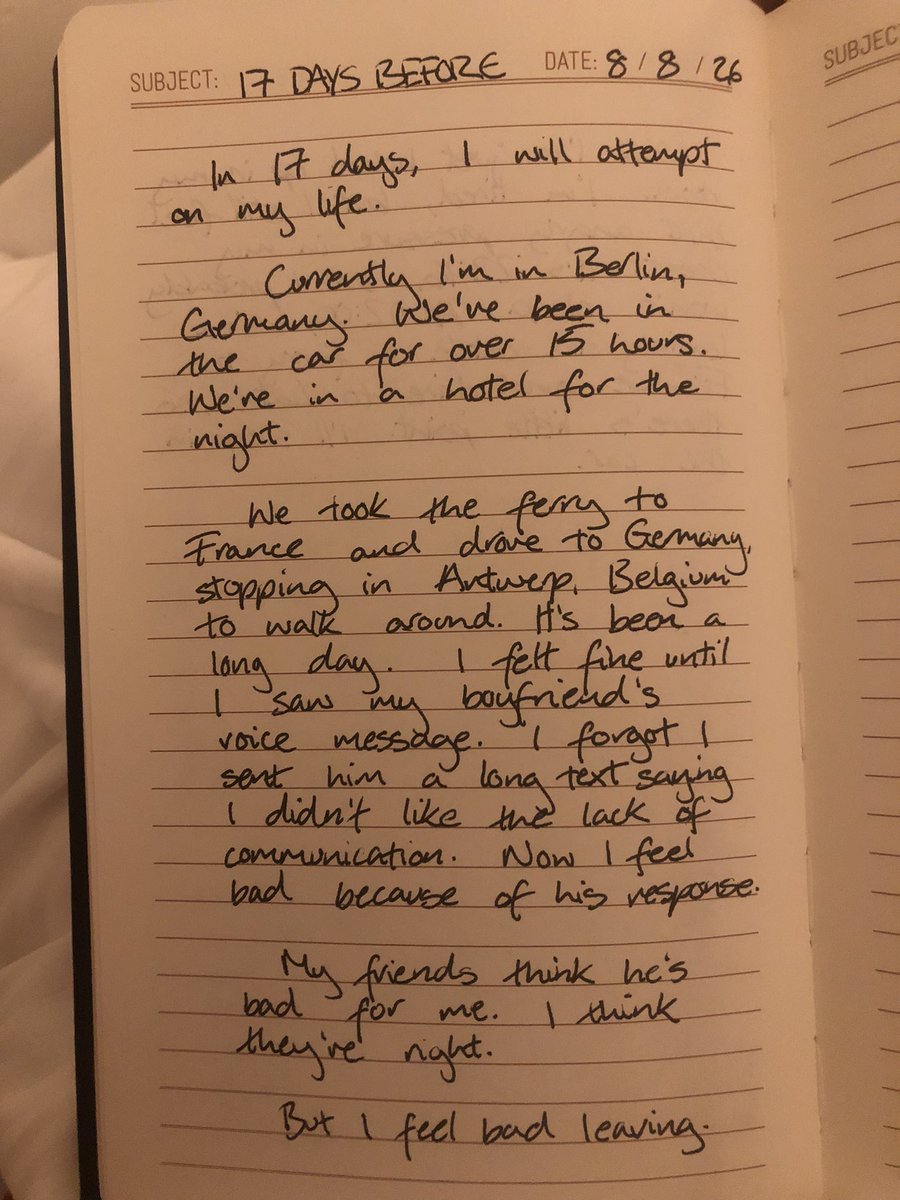 SUBJECT: 17 DAYS BEFORE DATE: 8 / 8 / 26
In 17 days, I will attempt
on my life.
Currently I'm in Berlin,
Germany. We've been in
the car for over 15 hours.
We're in a hotel for the
night.
We took the ferry to
France and drove to Germany,
stopping in Antwerp, Belgium
to walk around. It's been a
long day. I felt fine until
I saw my boyfriend's
voice message. I forgot I
sent him a long text saying
I didn't like the lack of
communication. Now I feel
bad because of his response.
My friends think he's
bad for me. I think
they're right.
But I feel bad leaving.
SUBJEC